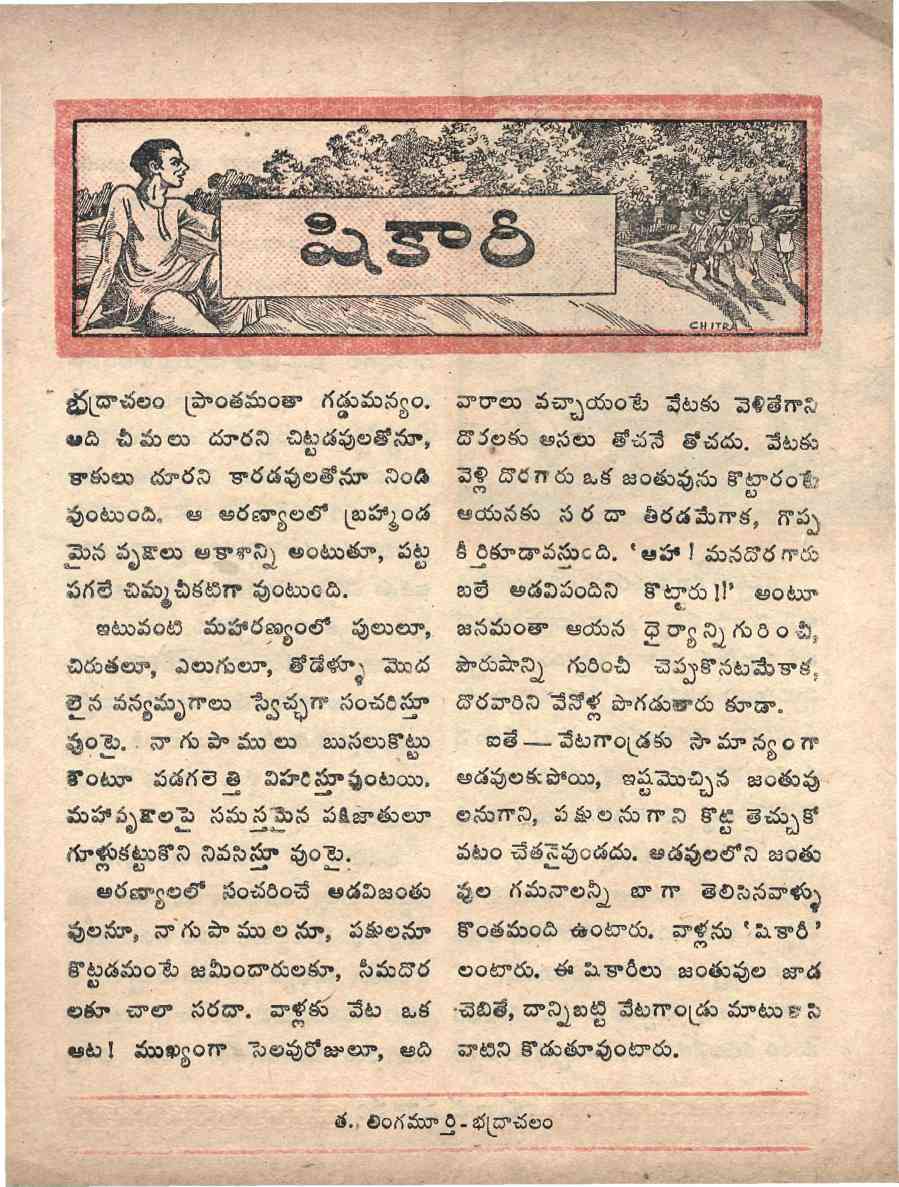 షికారీ
CHITRA
భద్రాచలం ప్రాంతమంతా గడ్డుమన్యం.
అది చీమలు దూరని చిట్టడవులతోనూ,
కాకులు దూరని కారడవులతోనూ నిండి
వుంటుంది. ఆ అరణ్యాలలో బ్రహ్మాండ
మైన వృక్షాలు ఆకాశాన్ని అంటుతూ, పట్ట
పగలే చిమ్మచీకటిగా వుంటుంది.
ఇటువంటి మహారణ్యంలో పులులూ,
చిరుతలూ, ఎలుగులూ, తోడేళ్ళూ మొద
లైన వన్యమృగాలు స్వేచ్ఛగా సంచరిస్తూ
వుంటై. నాగుపాములు బుసలుకొట్టు
కొంటూ పడగలెత్తి విహరిస్తూవుంటయి.
మహావృక్షాలపై సమస్తమైన పక్షిజాతులూ
గూళ్లుకట్టుకొని నివసిస్తూ వుంటై.
అరణ్యాలలో సంచరించే అడవిజంతు
వులనూ, నాగుపాములనూ, పక్షులనూ
కొట్టడమంటే జమీందారులకూ, సీమదొర
లకూ చాలా సరదా. వాళ్లకు వేట ఒక
ఆట! ముఖ్యంగా సెలవురోజులూ, ఆది
వారాలు వచ్చాయంటే వేటకు వెళితేగాని
దొరలకు అసలు తోచనే తోచదు. వేటకు
వెళ్లి దొరగారు ఒక జంతువును కొట్టారంటే
ఆయనకు సరదా తీరడమేగాక, గొప్ప
కీర్తికూడావస్తుంది. 'ఆహా! మనదొరగారు
బలే అడవిపందిని కొట్టారు!!' అంటూ
జనమంతా ఆయన ధైర్యాన్నిగురించీ,
పౌరుషాన్ని గురించీ చెప్పుకొనటమేకాక,
దొరవారిని వేనోళ్ల పొగడుతారు కూడా.
ఐతే — వేటగాండ్రకు సామాన్యంగా
అడవులకుపోయి, ఇష్టమొచ్చిన జంతువు
లనుగాని, పక్షులనుగాని కొట్టి తెచ్చుకో
వటం చేతనైవుండదు. అడవులలోని జంతు
వుల గమనాలన్నీ బాగా తెలిసినవాళ్ళు
కొంతమంది ఉంటారు. వాళ్లను 'షికారీ'
లంటారు. ఈ షికారీలు జంతువుల జాడ
చెబితే, దాన్నిబట్టి వేటగాండ్రు మాటుకాసి
వాటిని కొడుతూవుంటారు.
త. లింగమూర్తి - భద్రాచలం